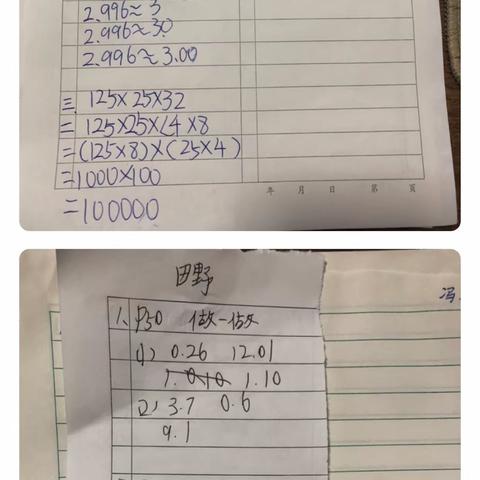 2.996≈3
2.996≈3.0
2.996≈3.00
三、125×25×32
=125×25×(4×8
=(125×8)×(25×4)
=1000×100
=100000
年 月 日 第 页
田野
1、P50 做一做
(1) 0.26 12.01
1.10
(2) 3.7 0.6
9.1